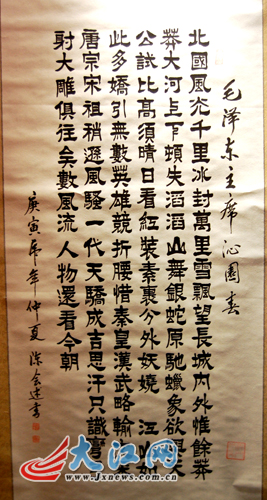 毛泽东主席沁園春
北國風光千里冰封萬里雪飄望長城内外惟餘莽
莽大河上下頓失滔滔山舞銀蛇原馳蠟象欲與天
公試比高須晴日看紅裝素裹分外妖嬈 江山如
此多嬌引無數英雄競折腰惜秦皇漢武略輸
唐宗宋祖稍遜風騷一代天驕成吉思汗只識彎
射大雕俱往矣數風流人物還看今朝
庚寅虎年仲夏 陈会书
大江网
www.jxnews.com.cn